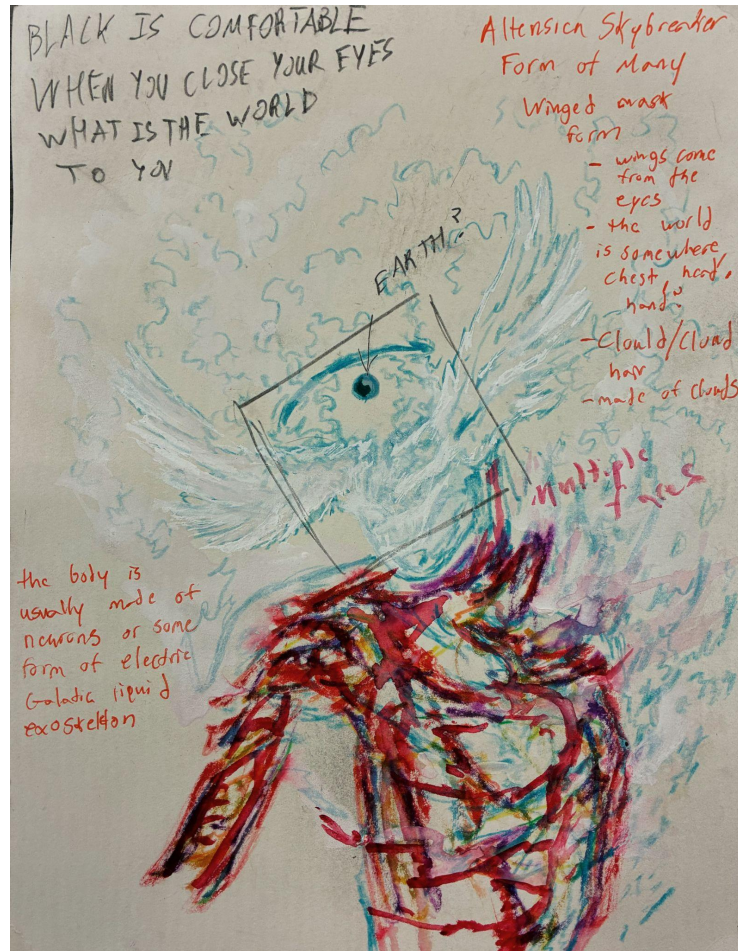 BLACK IS COMFORTABLE
WHEN YOU CLOSE YOUR EYES
WHAT IS THE WORLD
TO YOU
Altension Skybreaker
Form of Many
Winged mask
form
- wings come
from the
eyes
- the world
is somewhere
chest, head,
hand?
- Clould/Cloud
hair
- made of clouds
EARTH?
Multiple
faces
the body is
usually made of
neurons or some
form of electric
Galatic liquid
exoskelton